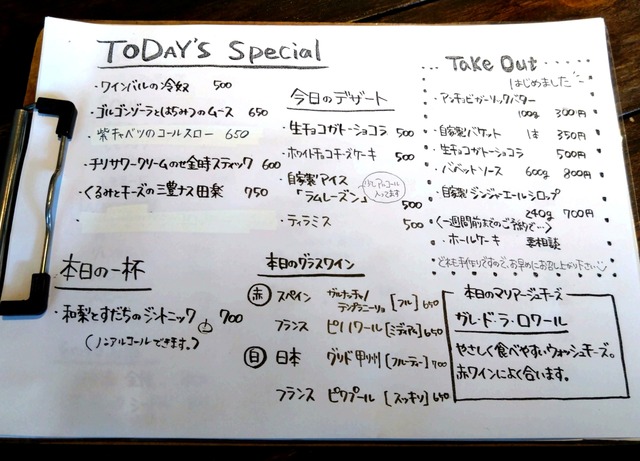 TODAY'S Special
・ワインバルの冷奴 500
・ゴルゴンゾーラとはちみつのムース 650
紫キャベツのコールスロー 650
・チリサワークリームのせ金時スティック 600
・くるみとチーズの三豊ナス田楽 750
今日のデザート
・生チョコガトーショコラ 500
・ホワイトチョコチーズケーキ 500
・自家製アイス
「ラムレーズン」 500
少しアルコール
入ってます
・ティラミス 500
Take Out
はじめました
・アンチョビガーリックバター
100g 300円
・自家製バケット 1本 350円
・生チョコガトーショコラ 500円
・バベットソース 600g 800円
・自家製ジンジャーエールシロップ
240g 700円
〈一週間前までのご予約で…〉
・ホールケーキ 要相談
どれも手作りですので、お早めにお召し上がり下さい
本日の一杯
・和梨とすだちのジントニック 700
(ノンアルコールできます。)
本日のグラスワイン
赤 スペイン ガルナッチャ/テンプラニーリョ [フル] 650
フランス ピノノワール [ミディアム] 650
白 日本 グリド甲州 [フルーティー] 700
フランス ピクプール [スッキリ] 640
本日のマリアージュチーズ
ガレ・ド・ラ・ロワール
やさしく食べやすいウォッシュチーズ。
赤ワインによく合います。